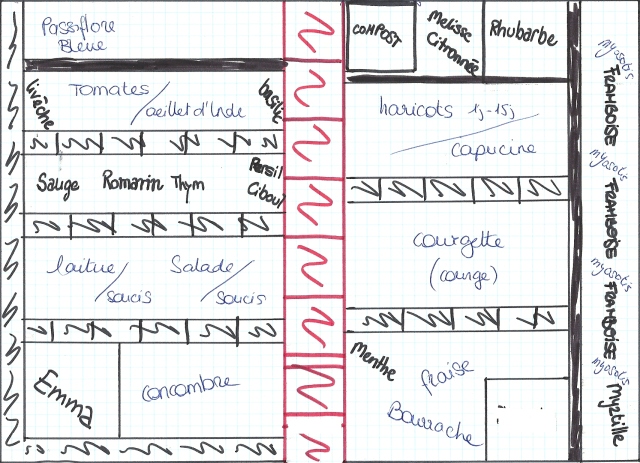 Passiflore
Bleue
livêche
Tomates/
oeillet d'Inde
basilic
Sauge Romarin Thym
Persil
Ciboul
laitue/
soucis
Salade/
soucis
Emma
concombre
COMPOST
Mélisse
Citronnée
Rhubarbe
haricots 1j-15j
capucine
courgette
(courge)
Menthe
fraise
Bourrache
myosotis
FRAMBOISE
myosotis
FRAMBOISE
myosotis
FRAMBOISE
myosotis
Myrtille